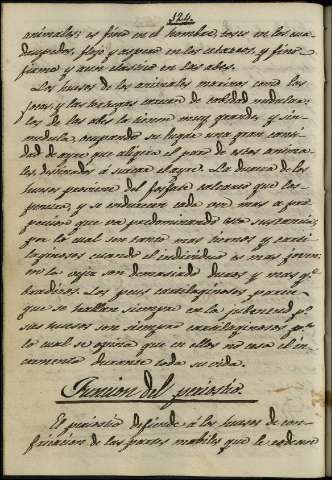 124.
animales; es fino en el hombre, tosco en los cua-
drupedos, flojo y aspero en los cetaceos, y fino
firme y aun elastico en las aves.
Los huesos de los animales marinos como los
focas, y las tortugas carecen de cavidad medular:
los de las aves la tienen muy grande, y sin
medula, ocupando su lugar una gran canti-
dad de ayre que aligera el peso de estos anima-
les, destinados á surcar el ayre. La dureza de los
huesos proviene del fosfate calcareo que los
penetra, y se endurecen cada vez mas a pro-
porcion que va predominando esta sustancia;
por lo cual son tanto mas tiernos y carti-
laginosos cuando el individuo es mas joven:
en la vejez son demasiado duros y mas q.e
bradizos. Los peces cartilaginosos parece
que se hallan siempre en la juventud p.s
sus huesos son siempre cartilaginosos p.r
lo cual se opina que en ellos no cesa el in-
cremento durante toda su vida.
Funcion del periostio.
El periostio defiende á los huesos de con-
fricacion de las partes mobiles que le rodean